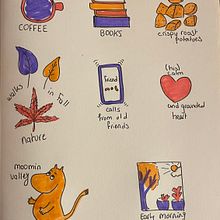 COFFEE
BOOKS
crispy roast
potatoes
walks
in Fall
nature
Friend
calls
from old
friends
(his)
calm
and grounded
heart
moomin
valley
Early morning